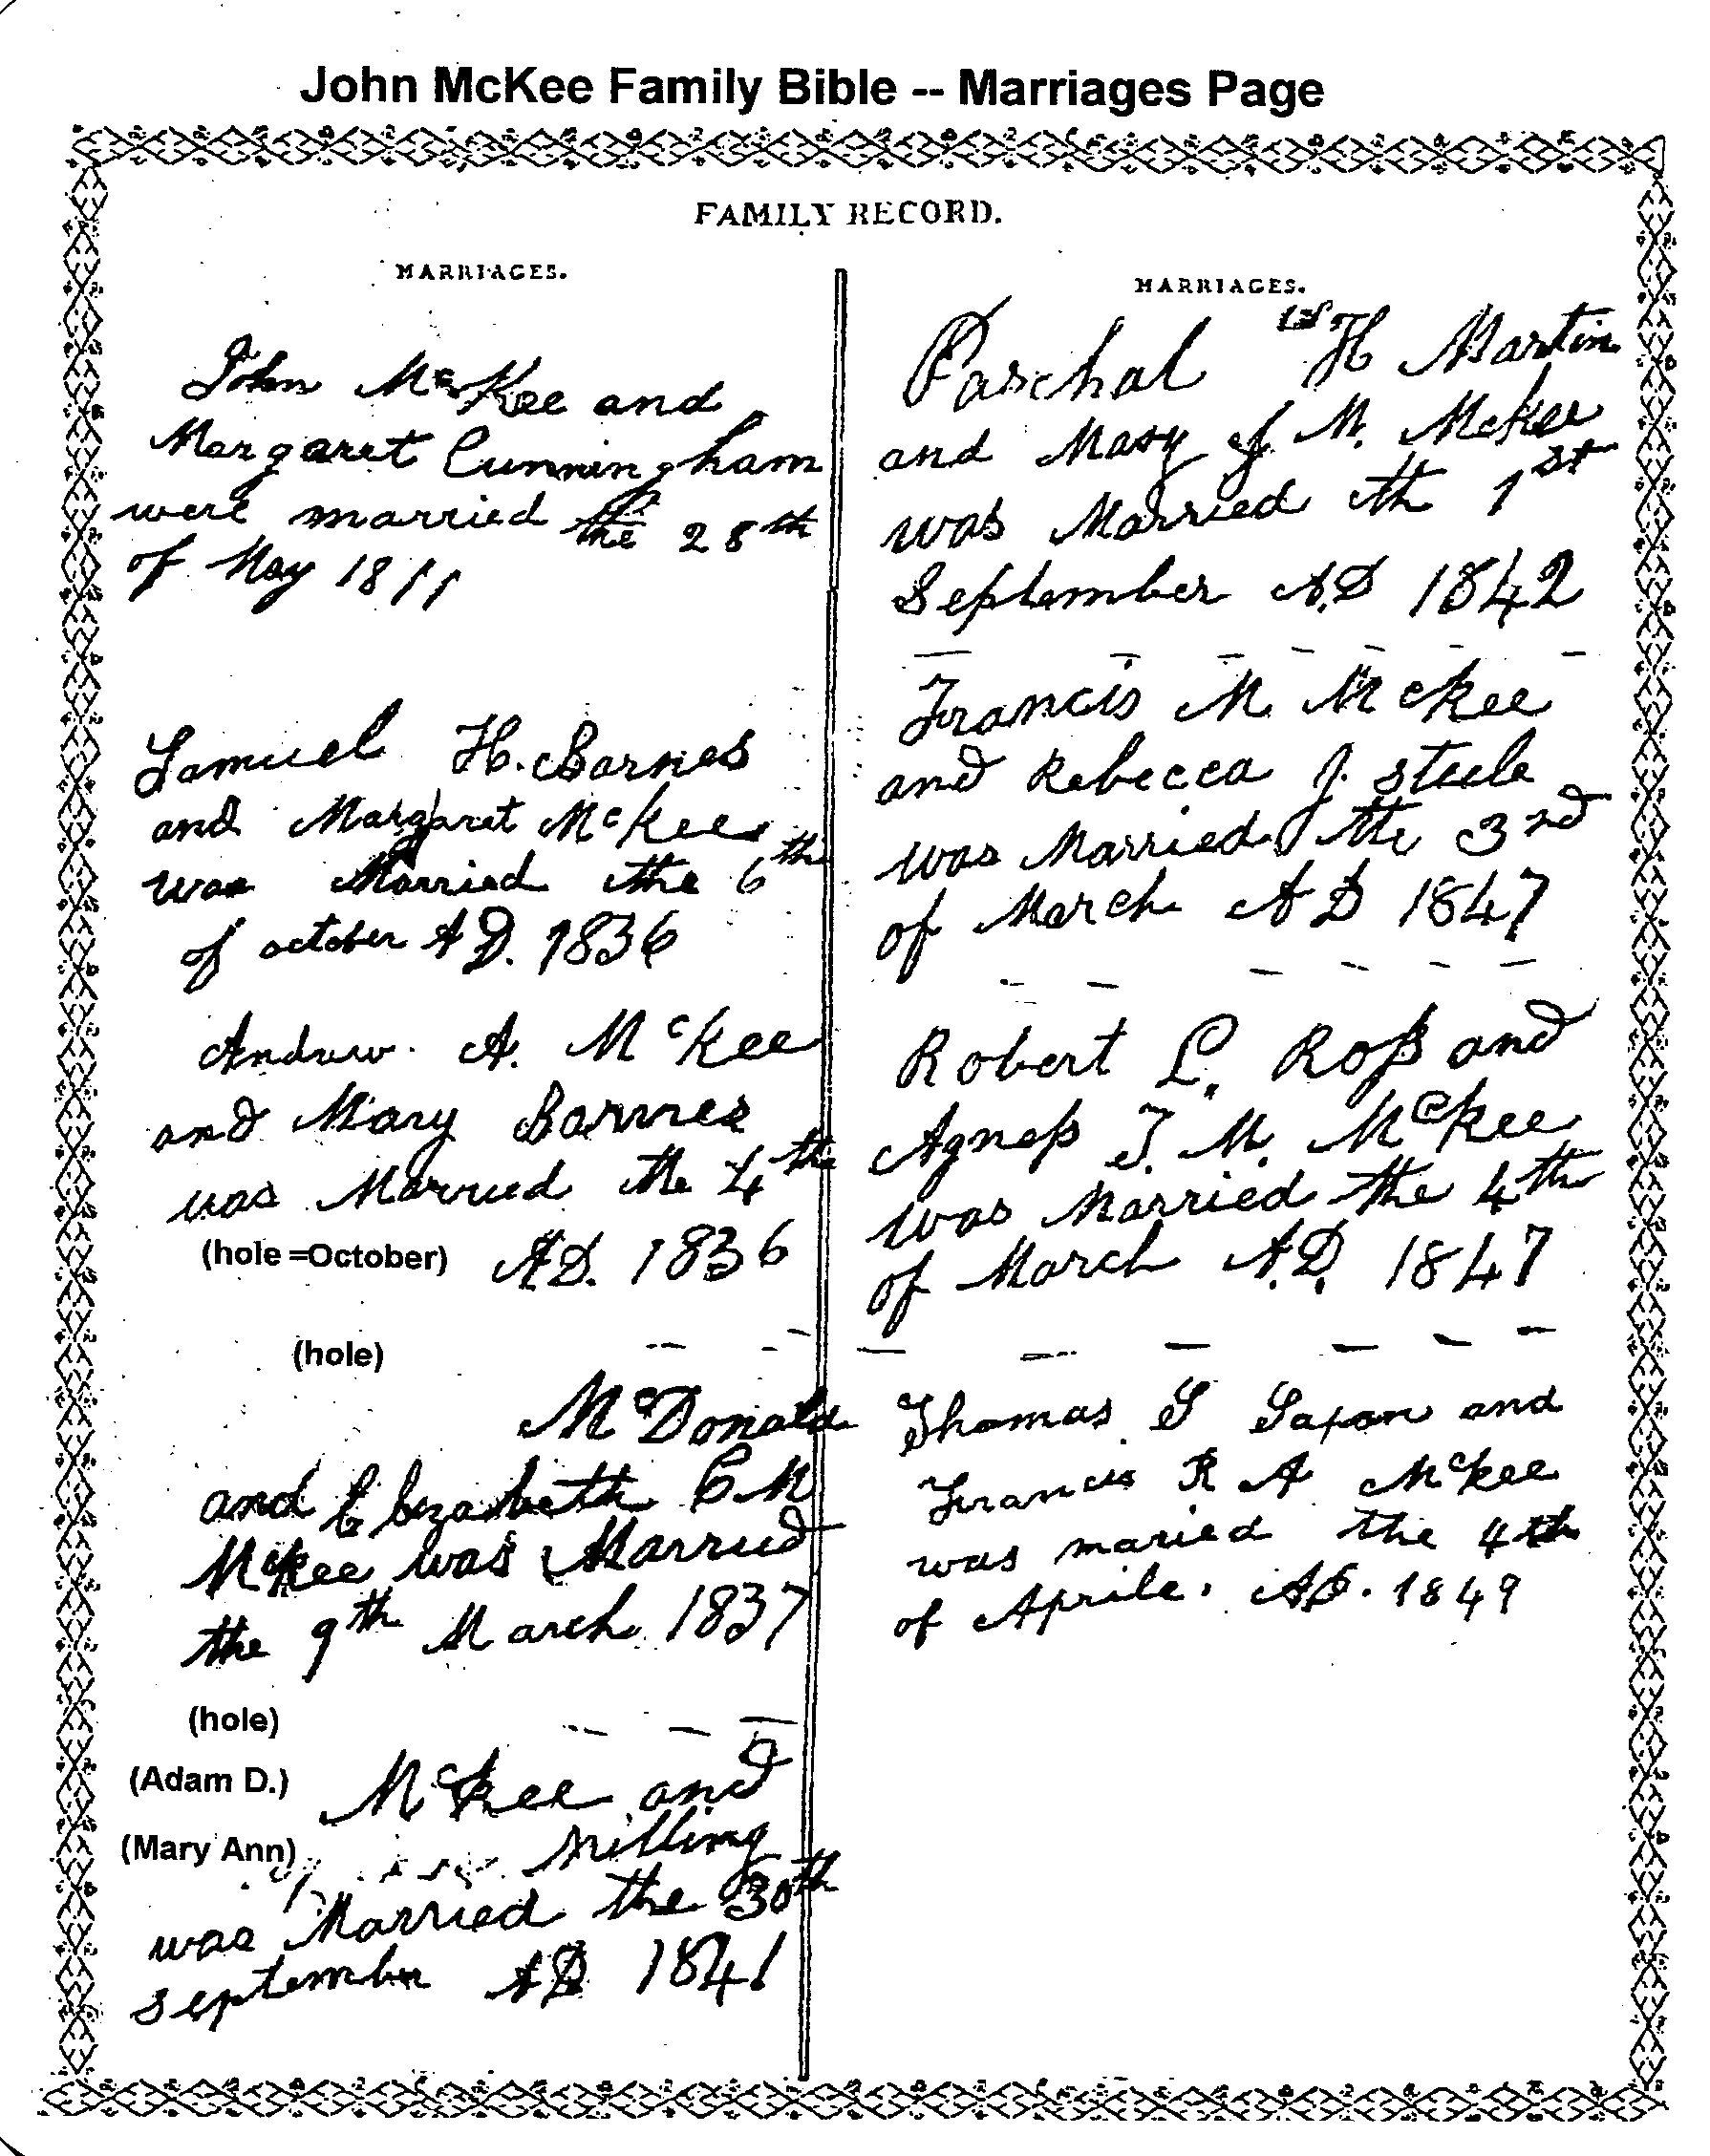 John McKee Family Bible -- Marriages Page
FAMILY RECORD.
MARRIAGES.
John McKee and
Margaret Cunningham
were married the 28th
of May 1811
Samuel H. Barnes
and Margaret McKee
was Married the 6th
of october AD. 1836
Andrew A. McKee
and Mary Barnes
was Married the 4th
(hole =October) AD. 1836
(hole)
McDonald
and Elizabeth C M
McKee was Married
the 9th March 1837
(hole)
(Adam D.) McKee and
(Mary Ann) Milling
was Married the 30th
september AD 1841
MARRIAGES.
Paschal H Martin
and Mary J M. McKee
was Married th 1st
September A.D 1842
Francis M McKee
and Rebecca J. steele
was Married the 3rd
of March AD 1847
Robert L. Roſs and
Agneſs T. M. McKee
was Married the 4th
of March A.D. 1847
Thomas S Saxon and
Francis R A McKee
was maried the 4th
of Aprile. AD. 1849